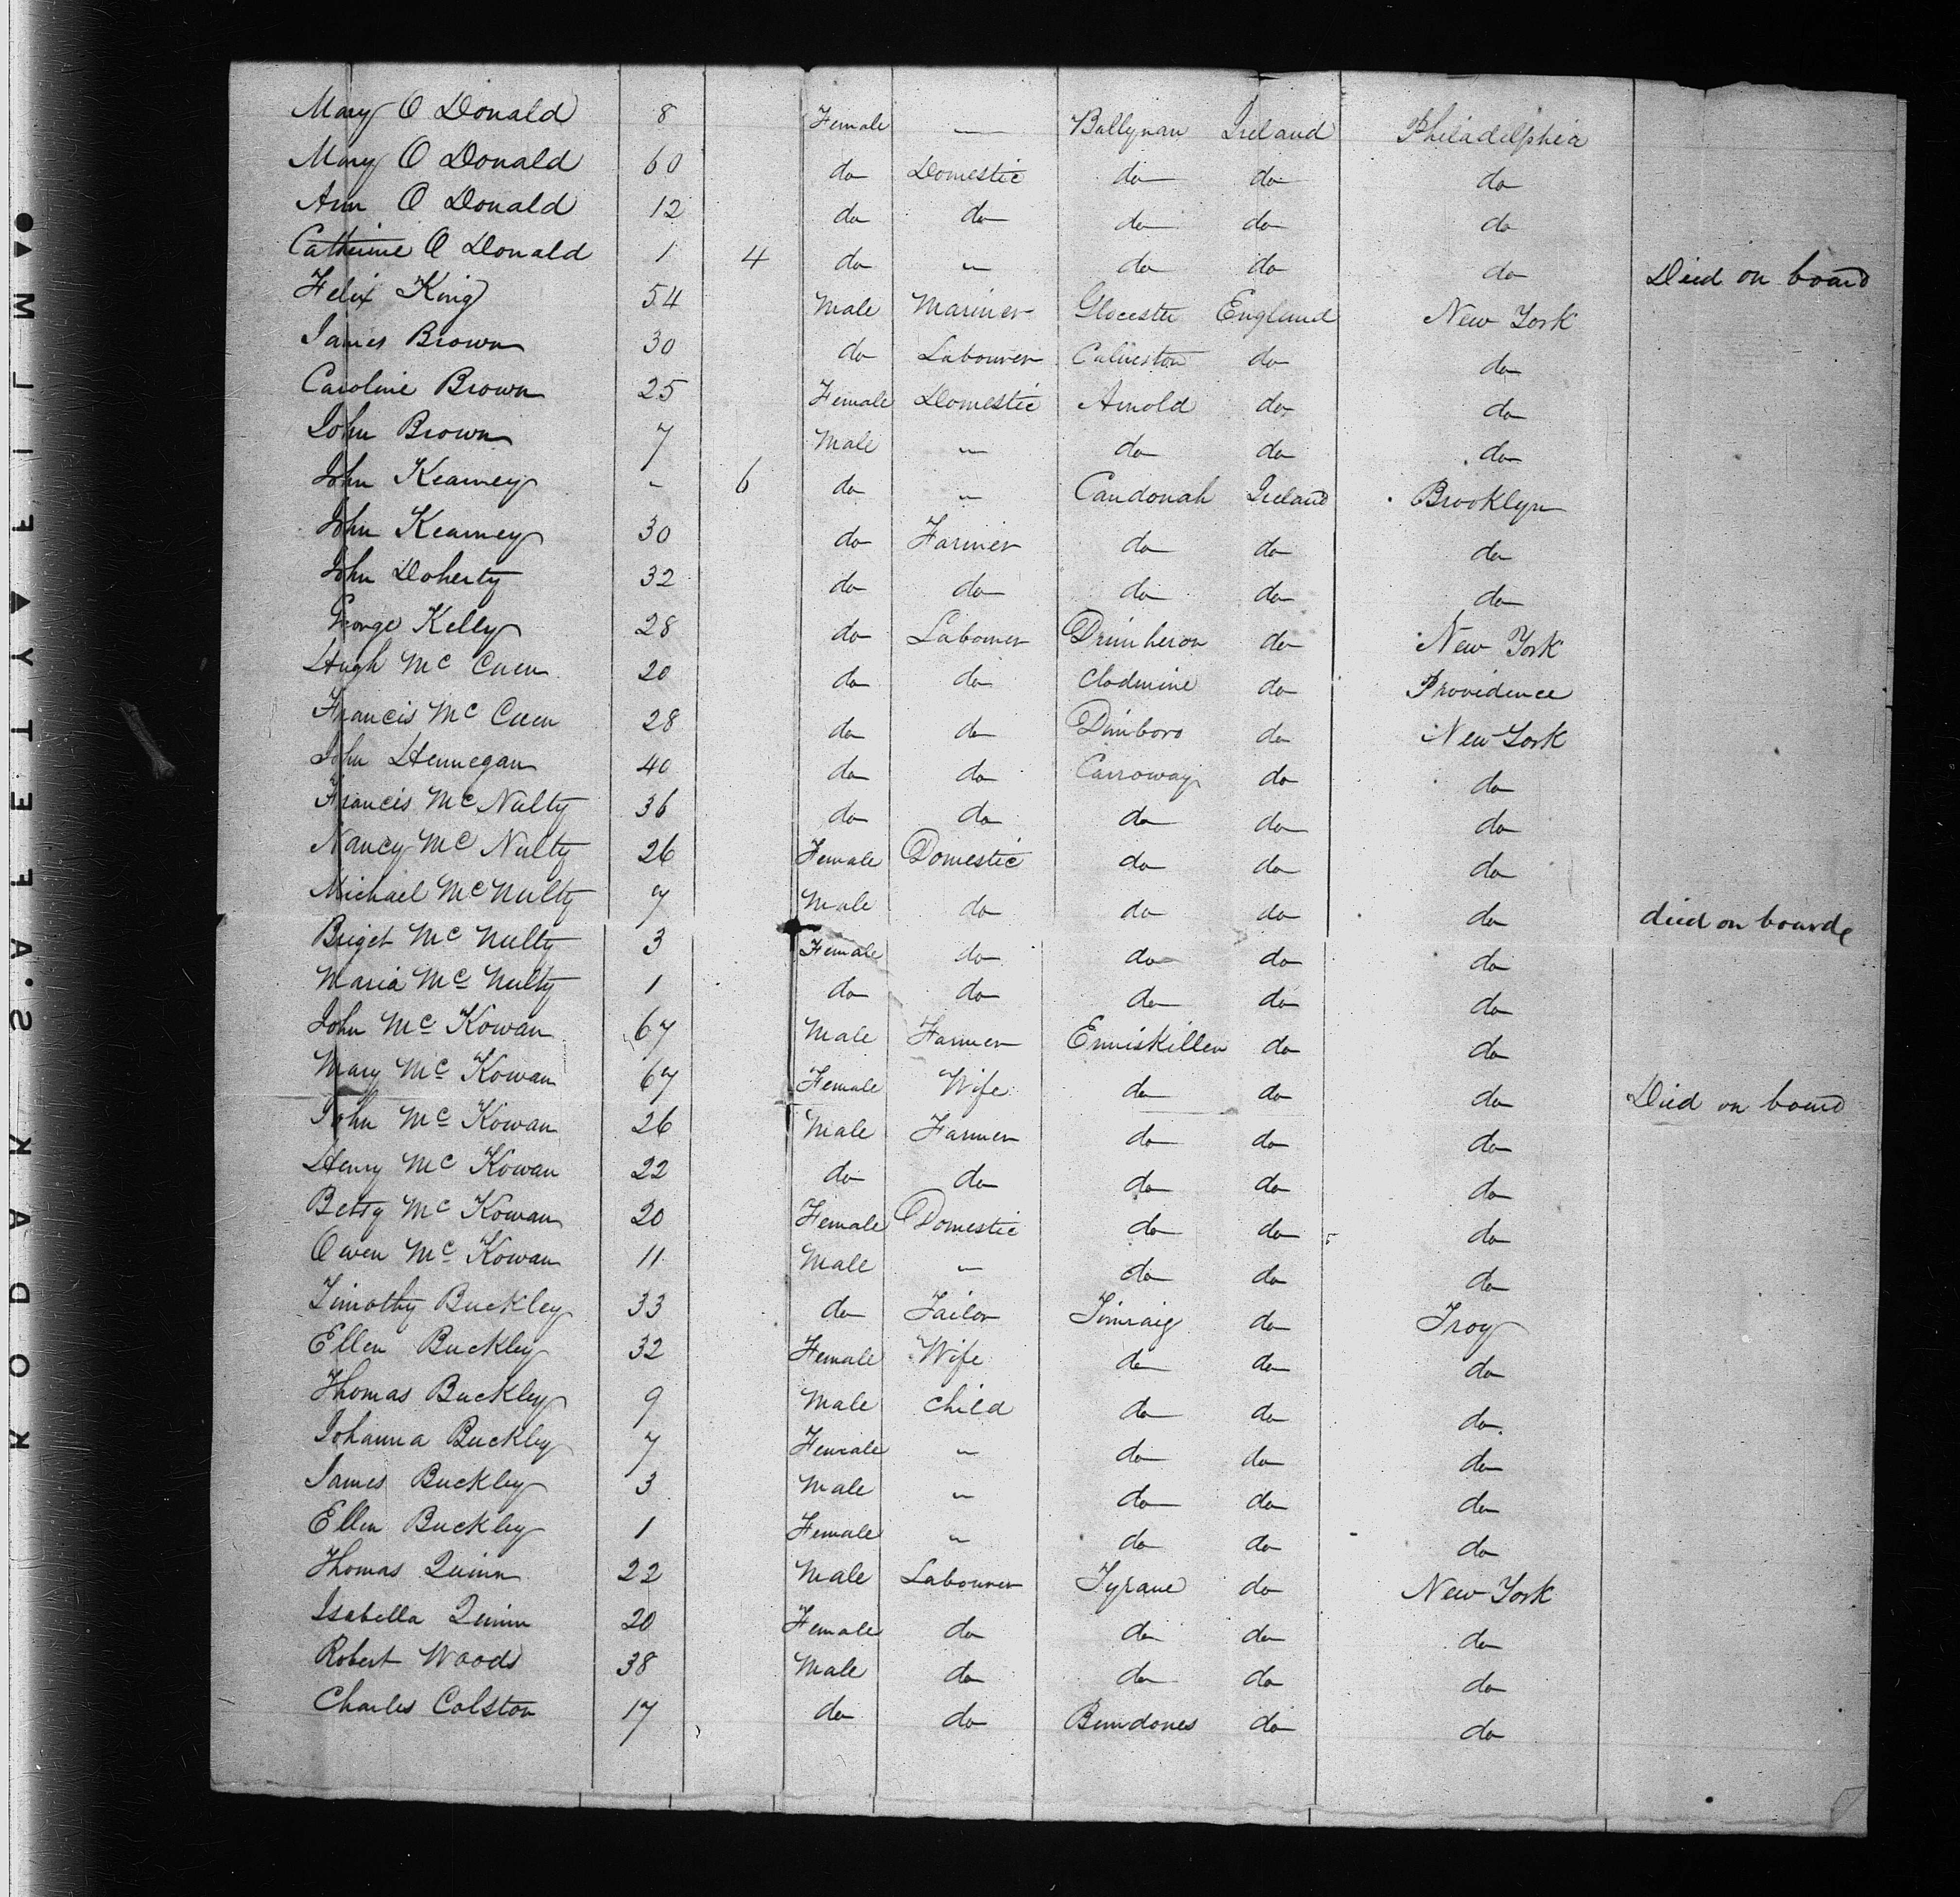 Mary O Donald 8 Female — Ballynan Ireland Philadelphia
Mary O Donald 60 do Domestic do do do
Ann O Donald 12 do do do do do
Catherine O Donald 1 4 do " do do do Died on board
Felix King 54 Male Mariner Glocester England New York
James Brown 30 do Labourer Calverton do do
Caroline Brown 25 Female Domestic Arnold do do
John Brown 7 Male " do do do
John Kearney - 6 do " Candonah Ireland Brooklyn
John Kearney 30 do Farmer do do do
John Doherty 32 do do do do do
George Kelly 28 do Labourer Drimheron do New York
Hugh Mc Cuen 20 do do Clodmine do Providence
Francis Mc Cuen 28 do do Dimboro do New York
John Hennegan 40 do do Carroway do do
Francis Mc Nulty 36 do do do do do
Nancy Mc Nulty 26 Female Domestic do do do
Michael Mc Nulty 7 Male do do do do died on board
Briget Mc Nulty 3 Female do do do do
Maria Mc Nulty 1 do do do do do
John Mc Kowan 67 Male Farmer Enniskillen do do
Mary Mc Kowan 67 Female Wife do do do Died on board
John Mc Kowan 26 Male Farmer do do do
Henry Mc Kowan 22 do do do do do
Betsy Mc Kowan 20 Female Domestic do do do
Owen Mc Kowan 11 Male " do do do
Timothy Buckley 33 do Tailor Timraig do Troy
Ellen Buckley 32 Female Wife do do do
Thomas Buckley 9 Male Child do do do
Johanna Buckley 7 Female " do do do
James Buckley 3 Male " do do do
Ellen Buckley 1 Female " do do do
Thomas Quinn 22 Male Labourer Tyrane do New York
Isabella Quinn 20 Female do do do do
Robert Woods 38 Male do do do do
Charles Colston 17 do do Bundones do do
KODAK·S.A.FETY▲FILM▲●